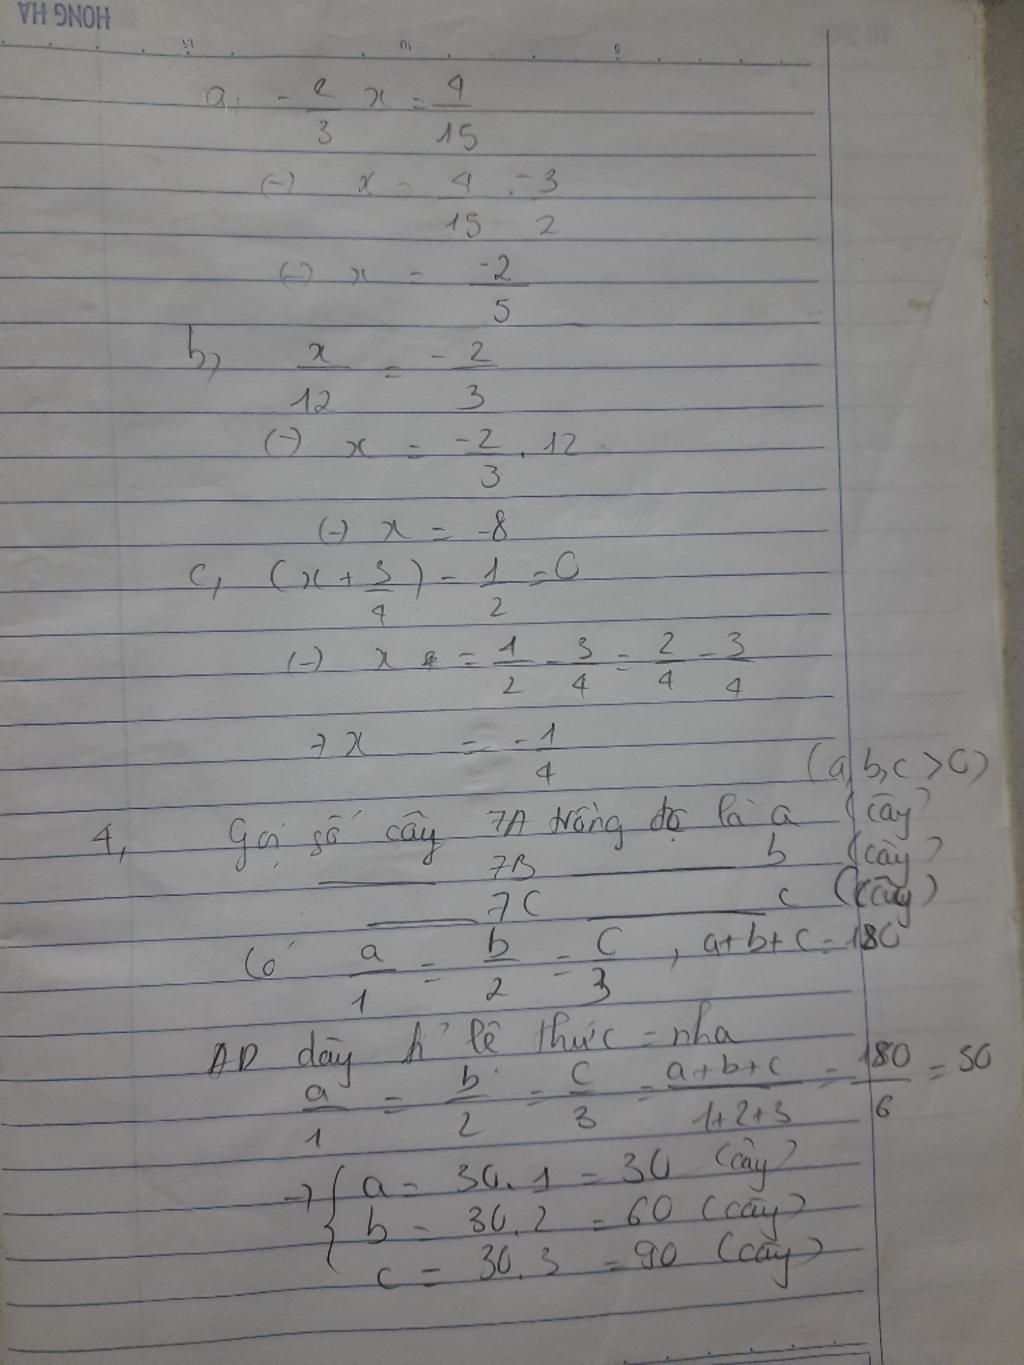 HONG HA
a, -2/3 x = 4/15
(-) x = 4/15 . -3/2
(-) x = -2/5
b, x/12 = -2/3
(-) x = -2/3 . 12
(-) x = -8
c, (x + 3/4) - 1/2 = 0
(-) x = 1/2 - 3/4 = 2/4 - 3/4
→ x = -1/4
(a, b, c > 0)
4, Gọi số cây 7A trồng đc là a (cây)
7B b (cây)
7C c (cây)
Có a/1 = b/2 = c/3, a+b+c = 180
AD dãy tỉ lệ thức = nha
a/1 = b/2 = c/3 = a+b+c/1+2+3 = 180/6 = 30
→ { a = 30.1 = 30 (cây)
b = 30.2 = 60 (cây)
c = 30.3 = 90 (cây)